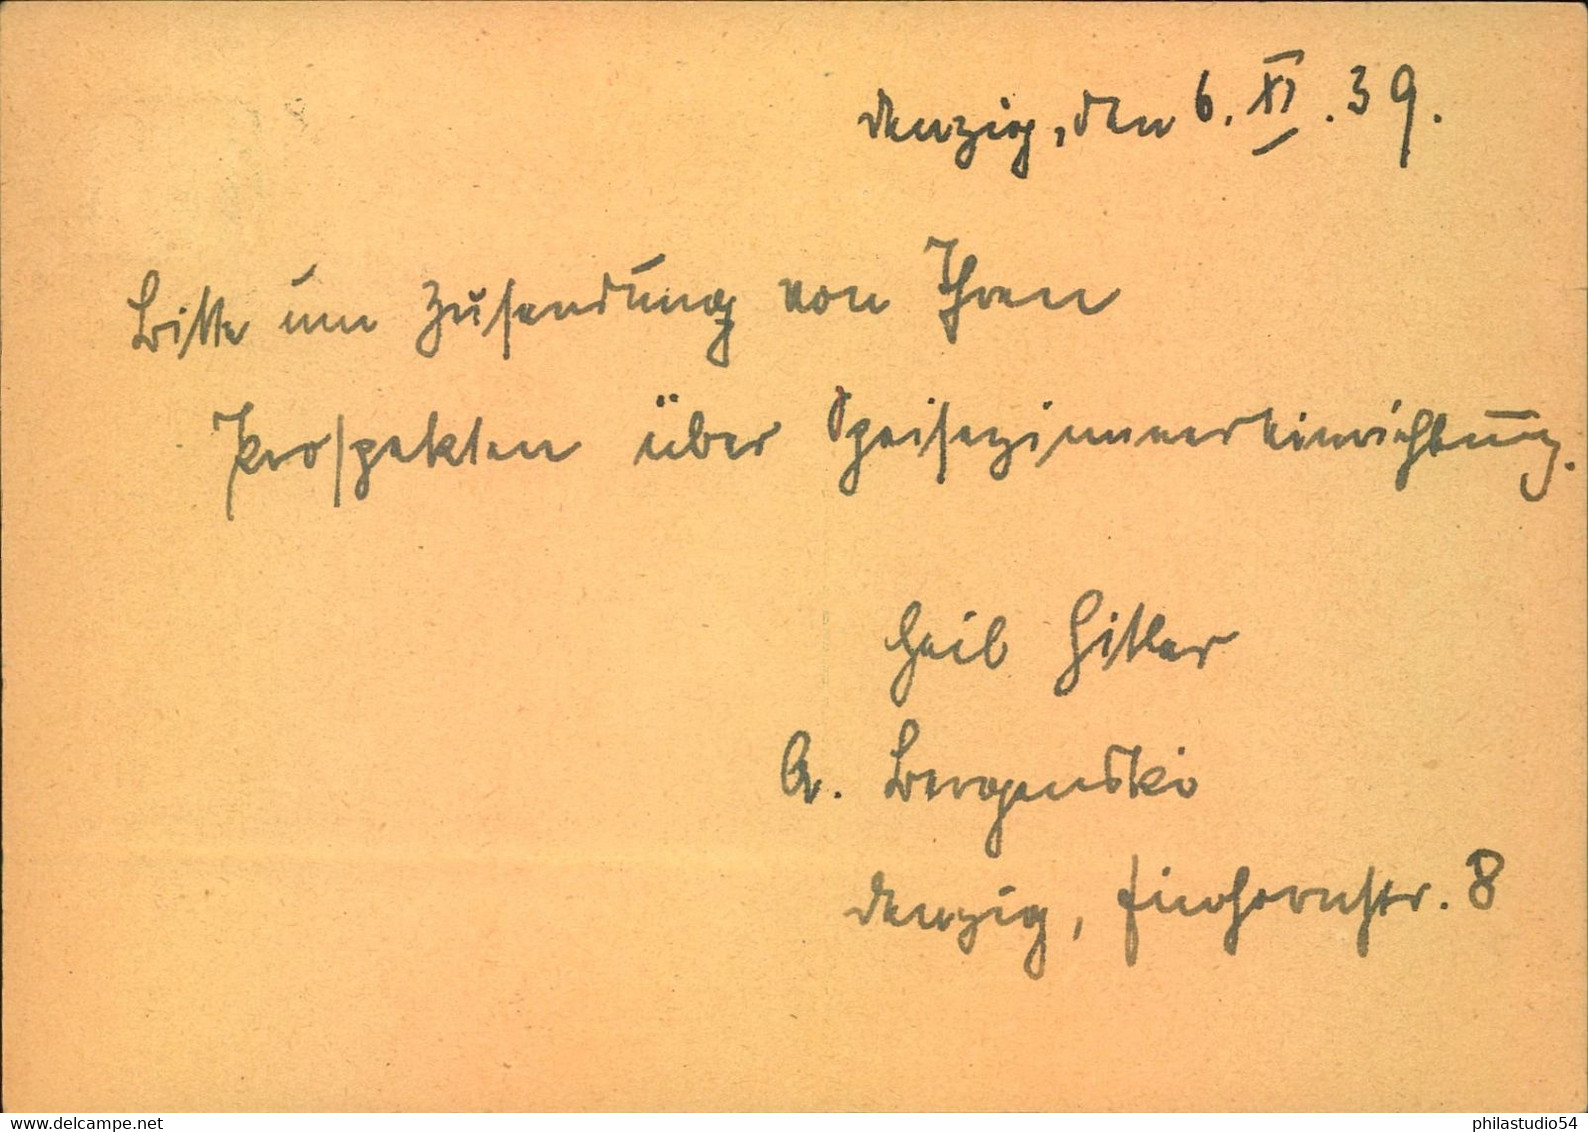 Danzig, den 6. XI. 39.
Bitte um Zusendung von Ihren
Prospekten über Speisezimmereinrichtung.
Heil Hitler
A.
Danzig,
8
www.delcampe.net
philastudio54